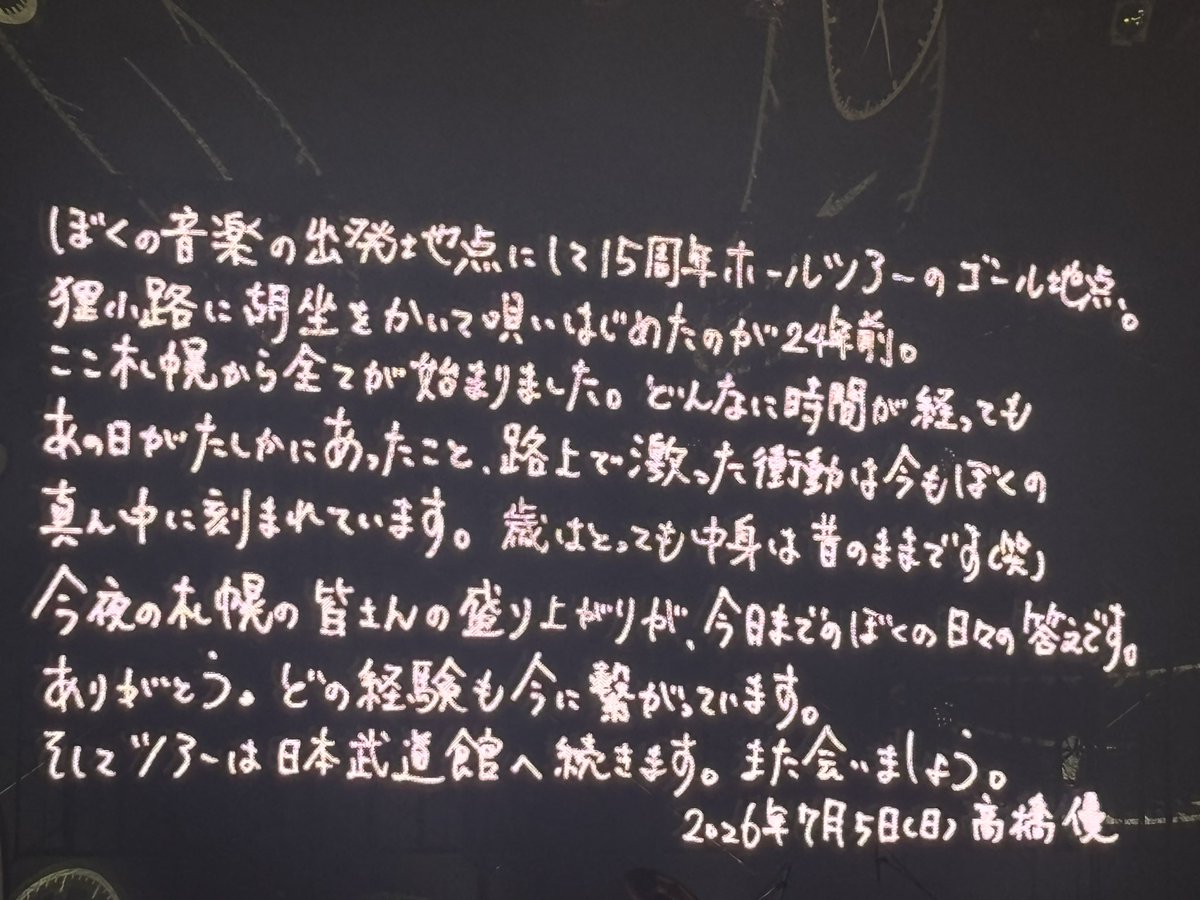 ぼくの音楽の出発地点にして15周年ホールツアーのゴール地点、。
狸小路に胡坐をかいて唄いはじめたのが24年前。
ここ札幌から全てが始まりました。どんなに時間が経っても
あの日がたしかにあったこと、路上で激った衝動は今もぼくの
真ん中に刻まれています。歳はとっても中身は昔のままです(笑)
今夜の札幌の皆さんの盛り上がりが、今日までのぼくの日々の答えです。
ありがとう。どの経験も今に繋がっています。
そしてツアーは日本武道館へ続きます。また会いましょう。
2026年7月5日(日)高橋優